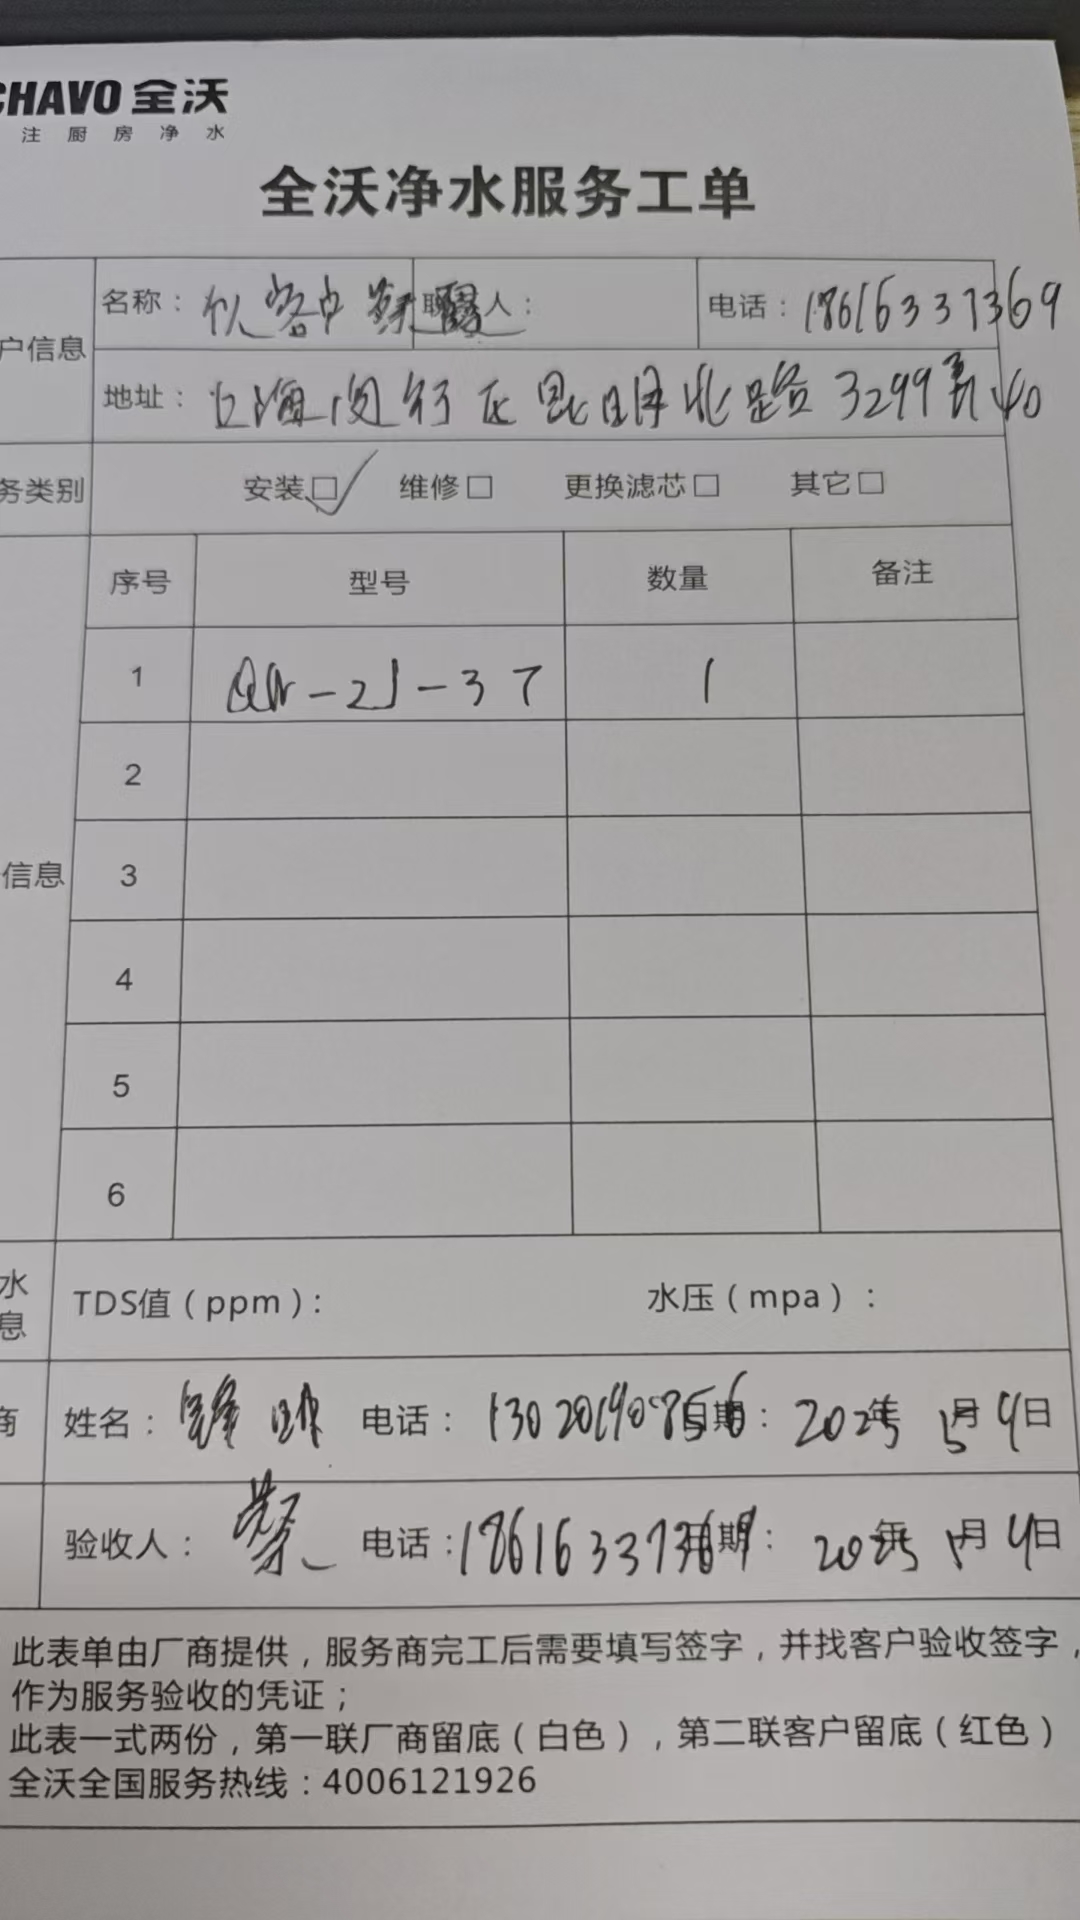 CHAVO 全沃
注厨房净水
全沃净水服务工单
户信息
名称： 客户 联 人：
电话：18616337369
地址：上海闵行区昆明北路3299弄40
务类别
安装☑ 维修□ 更换滤芯□ 其它□
序号 型号 数量 备注
1 -2J-3T 1
2
信息
3
4
5
6
水
息
TDS值（ppm）： 水压（mpa）：
商
姓名： 电话： 日期：2025年5月4日
验收人： 电话：18616337369 日期：2025年5月4日
此表单由厂商提供，服务商完工后需要填写签字，并找客户验收签字，
作为服务验收的凭证；
此表一式两份，第一联厂商留底（白色），第二联客户留底（红色）
全沃全国服务热线：4006121926